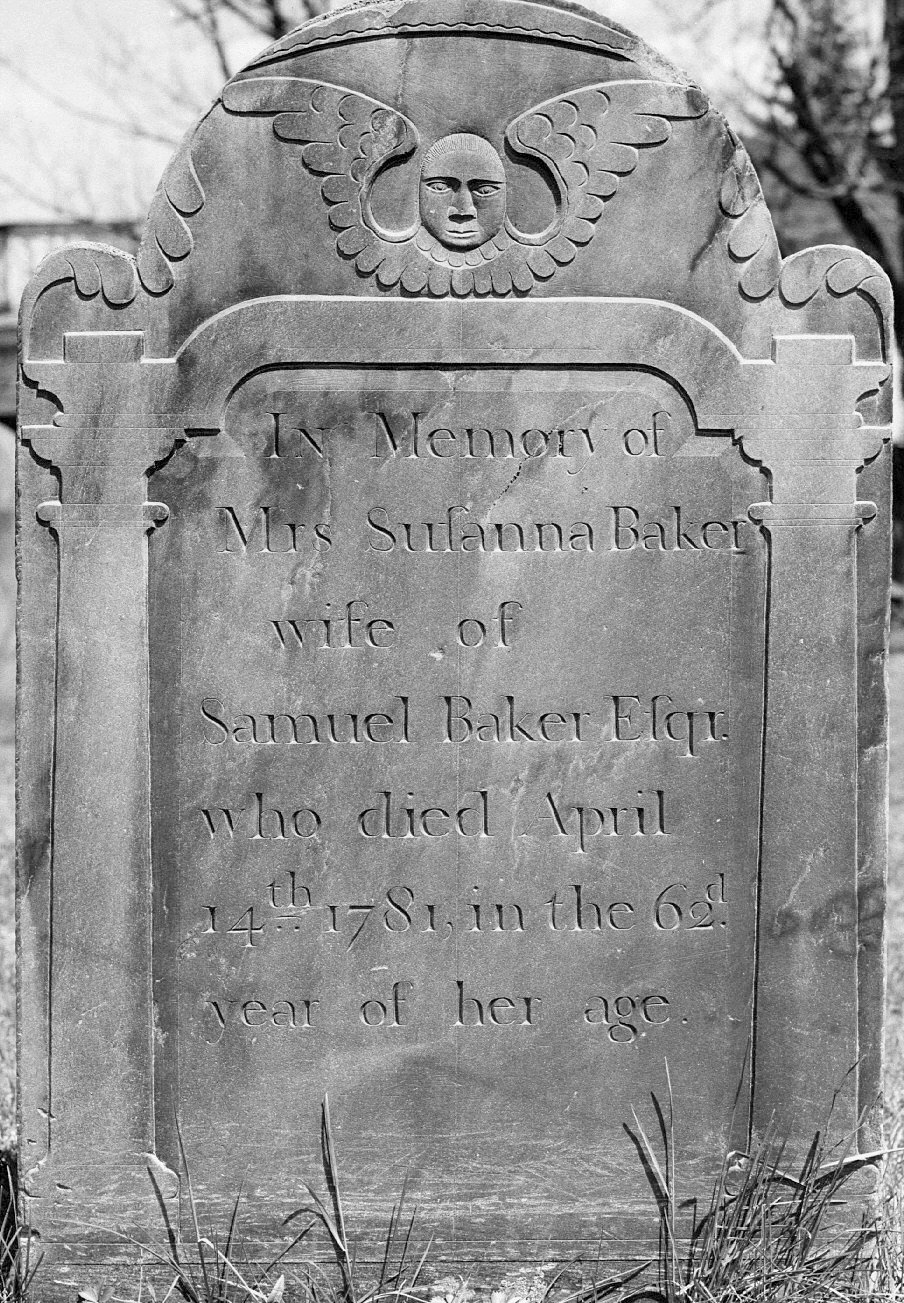 In Memory of
Mrs Suſanna Baker
wife of
Samuel Baker Eſqr.
who died April
14th 1781, in the 62d.
year of her age.